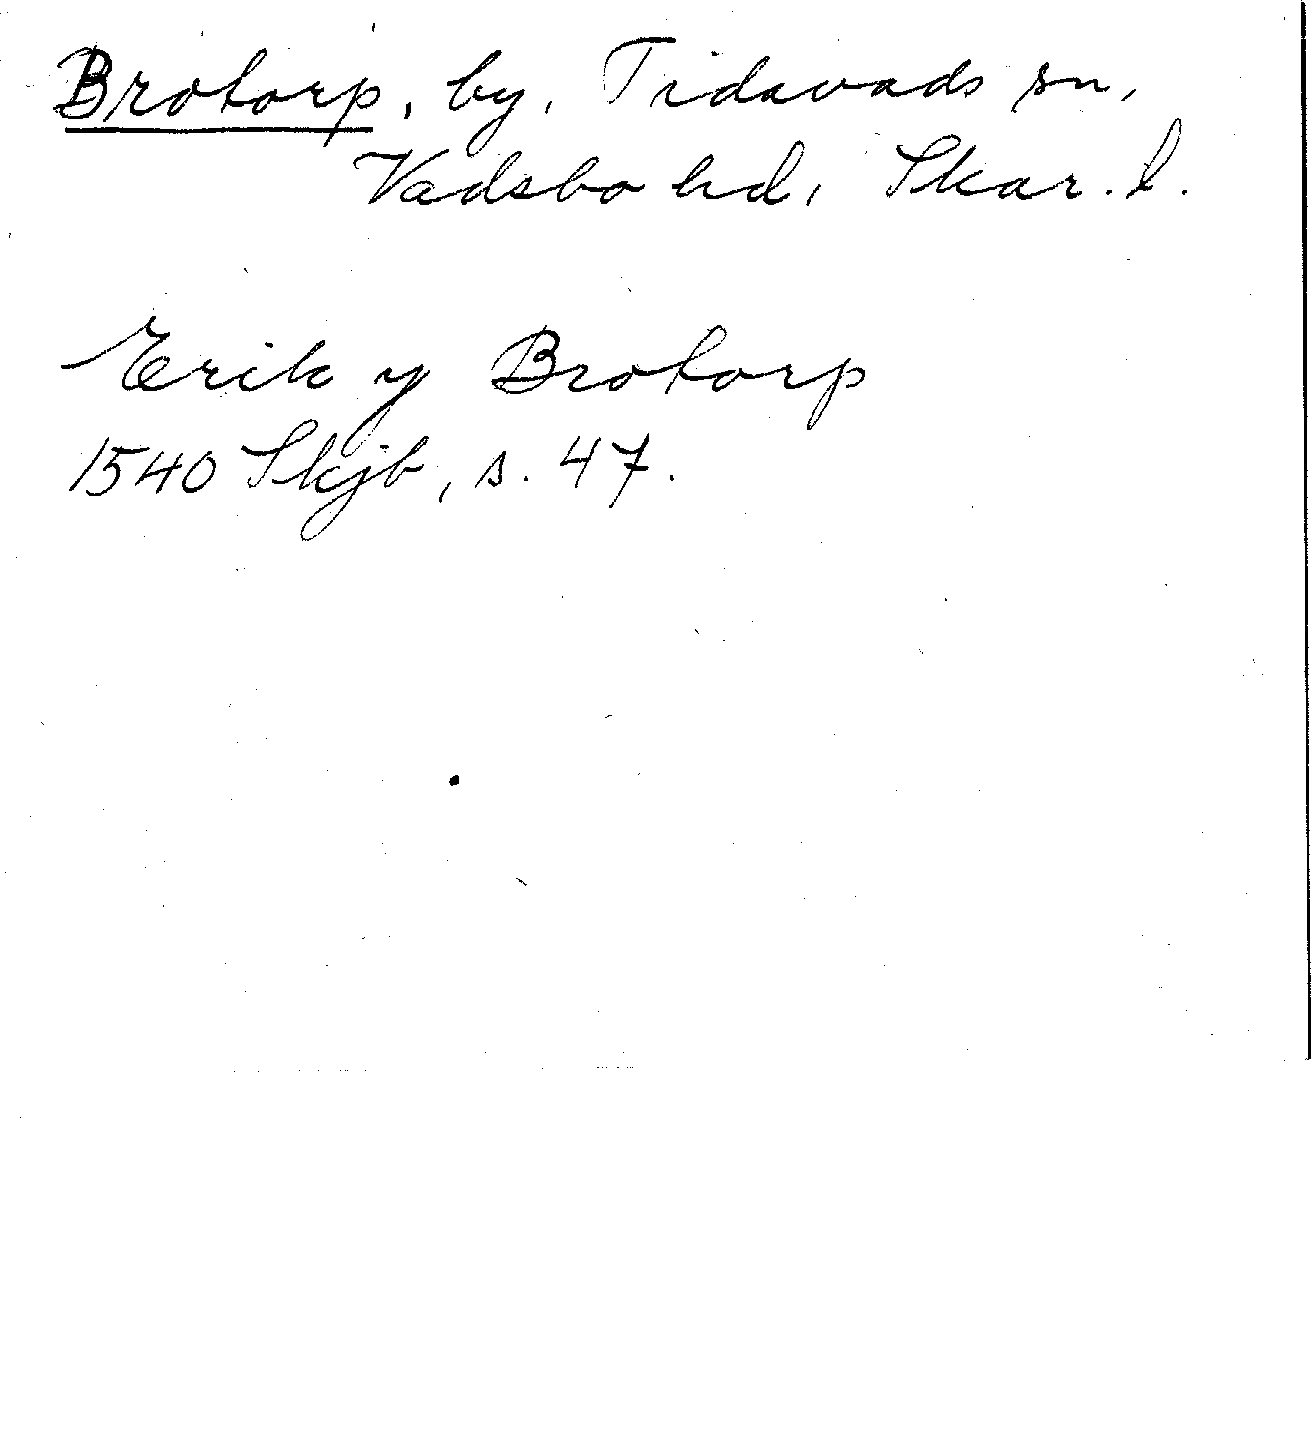 Brotorp, by, Tidavads sn,
Vadsbo hd, Skar. l.
Erik y Brotorp
1540 Skjb, s. 47.